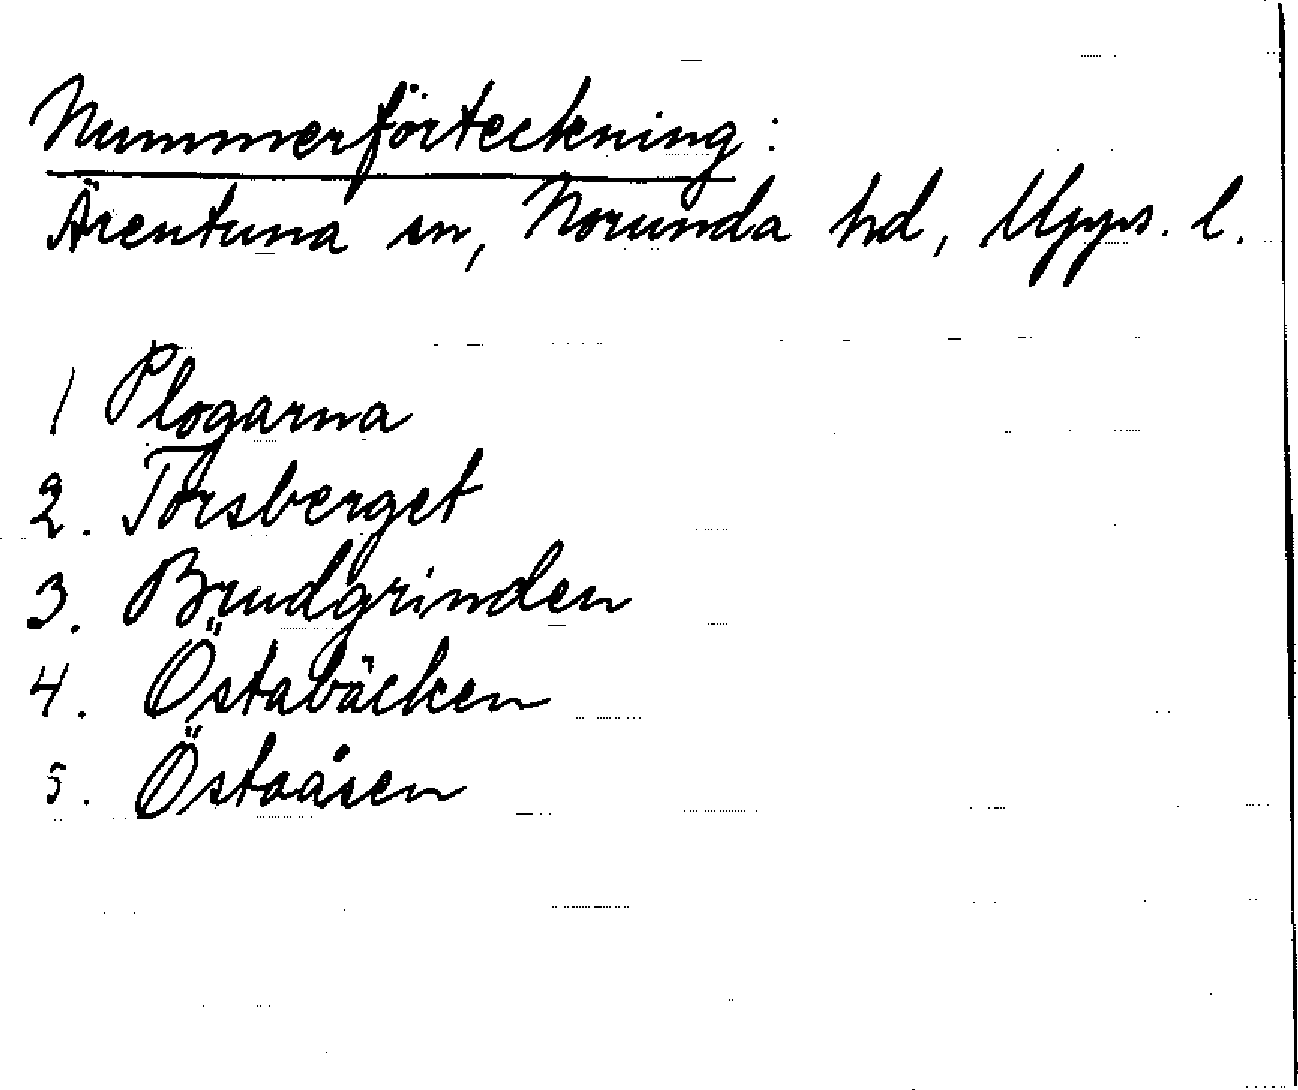 Nummerförteckning:
Ärentuna sn, Norunda hd, Upps. l.
1 Plogarna
2. Torsberget
3. Brudgrinden
4. Östabäcken
5. Östaåsen